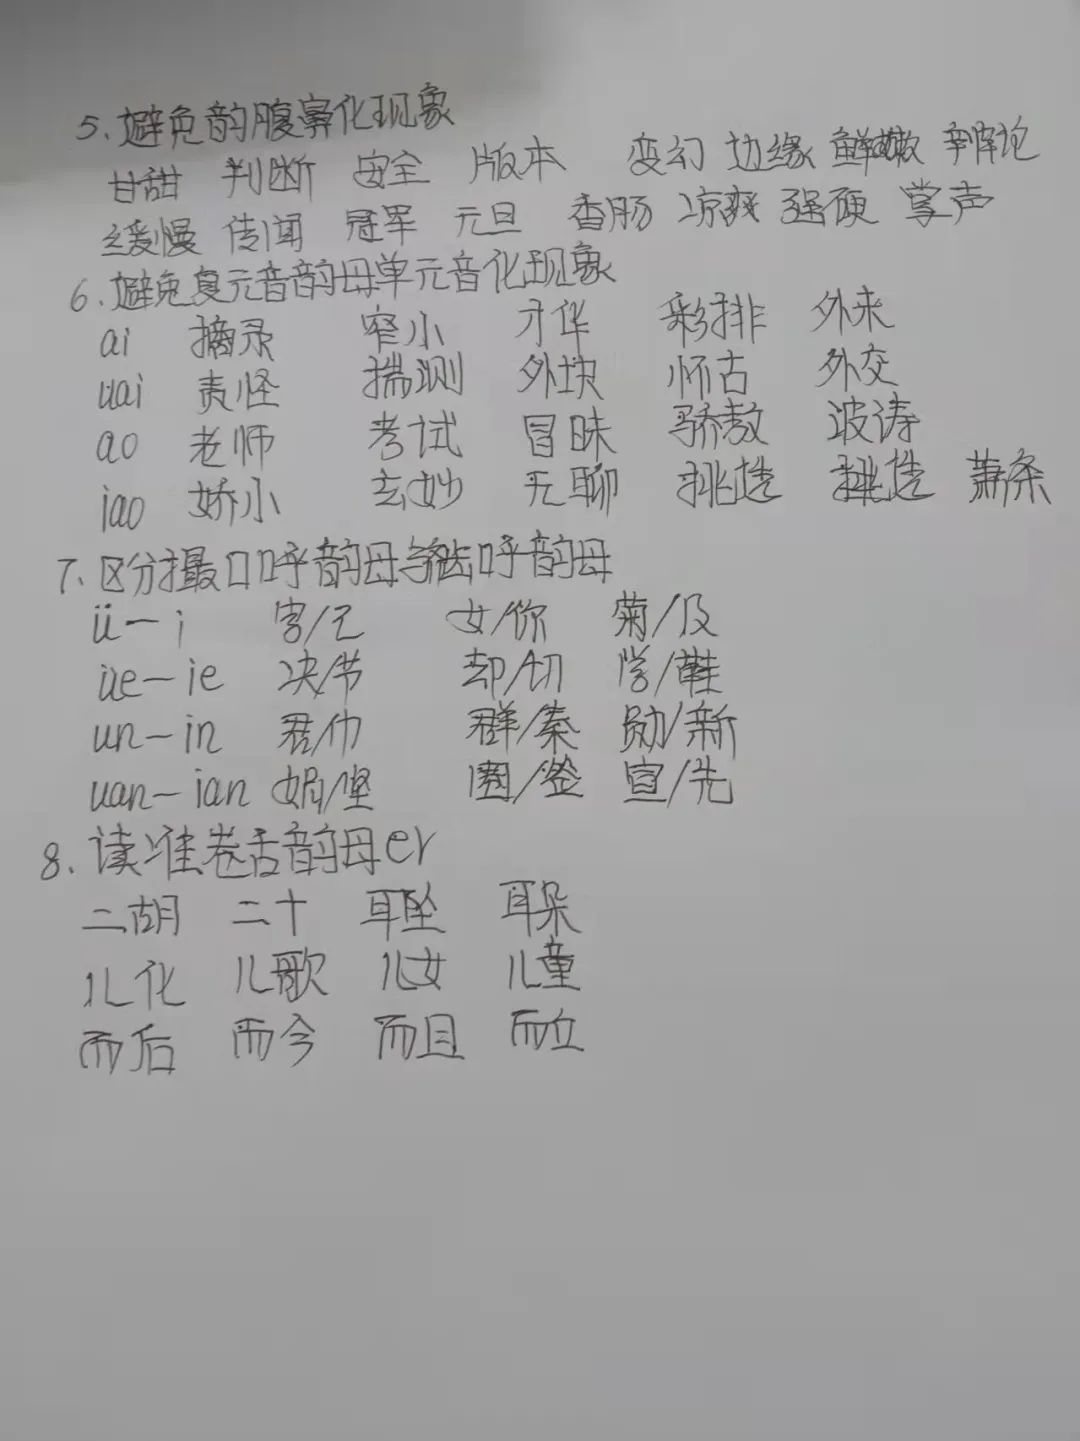 5.避免韵腹鼻化现象
甘甜 判断 安全 版本 变幻 边缘 鲜嫩 辩论
缓慢 传闻 冠军 元旦 香肠 凉爽 强硬 掌声
6.避免复元音韵母单元音化现象
ai 摘录 窄小 才华 彩排 外来
uai 责怪 揣测 外块 怀古 外交
ao 老师 考试 冒昧 骄傲 波涛
iao 娇小 玄妙 无聊 挑选 挑选 萧条
7.区分撮口呼韵母与齐齿呼韵母
ü—i 女/你 菊/及
üe—ie 决/节 却/切 学/鞋
un—in 君/巾 群/秦 勋/新
uan—ian 娟/坚 圈/签 宣/先
8.读准卷舌韵母er
二胡 二十 耳坠 耳朵
儿化 儿歌 儿女 儿童
而后 而今 而且 而立